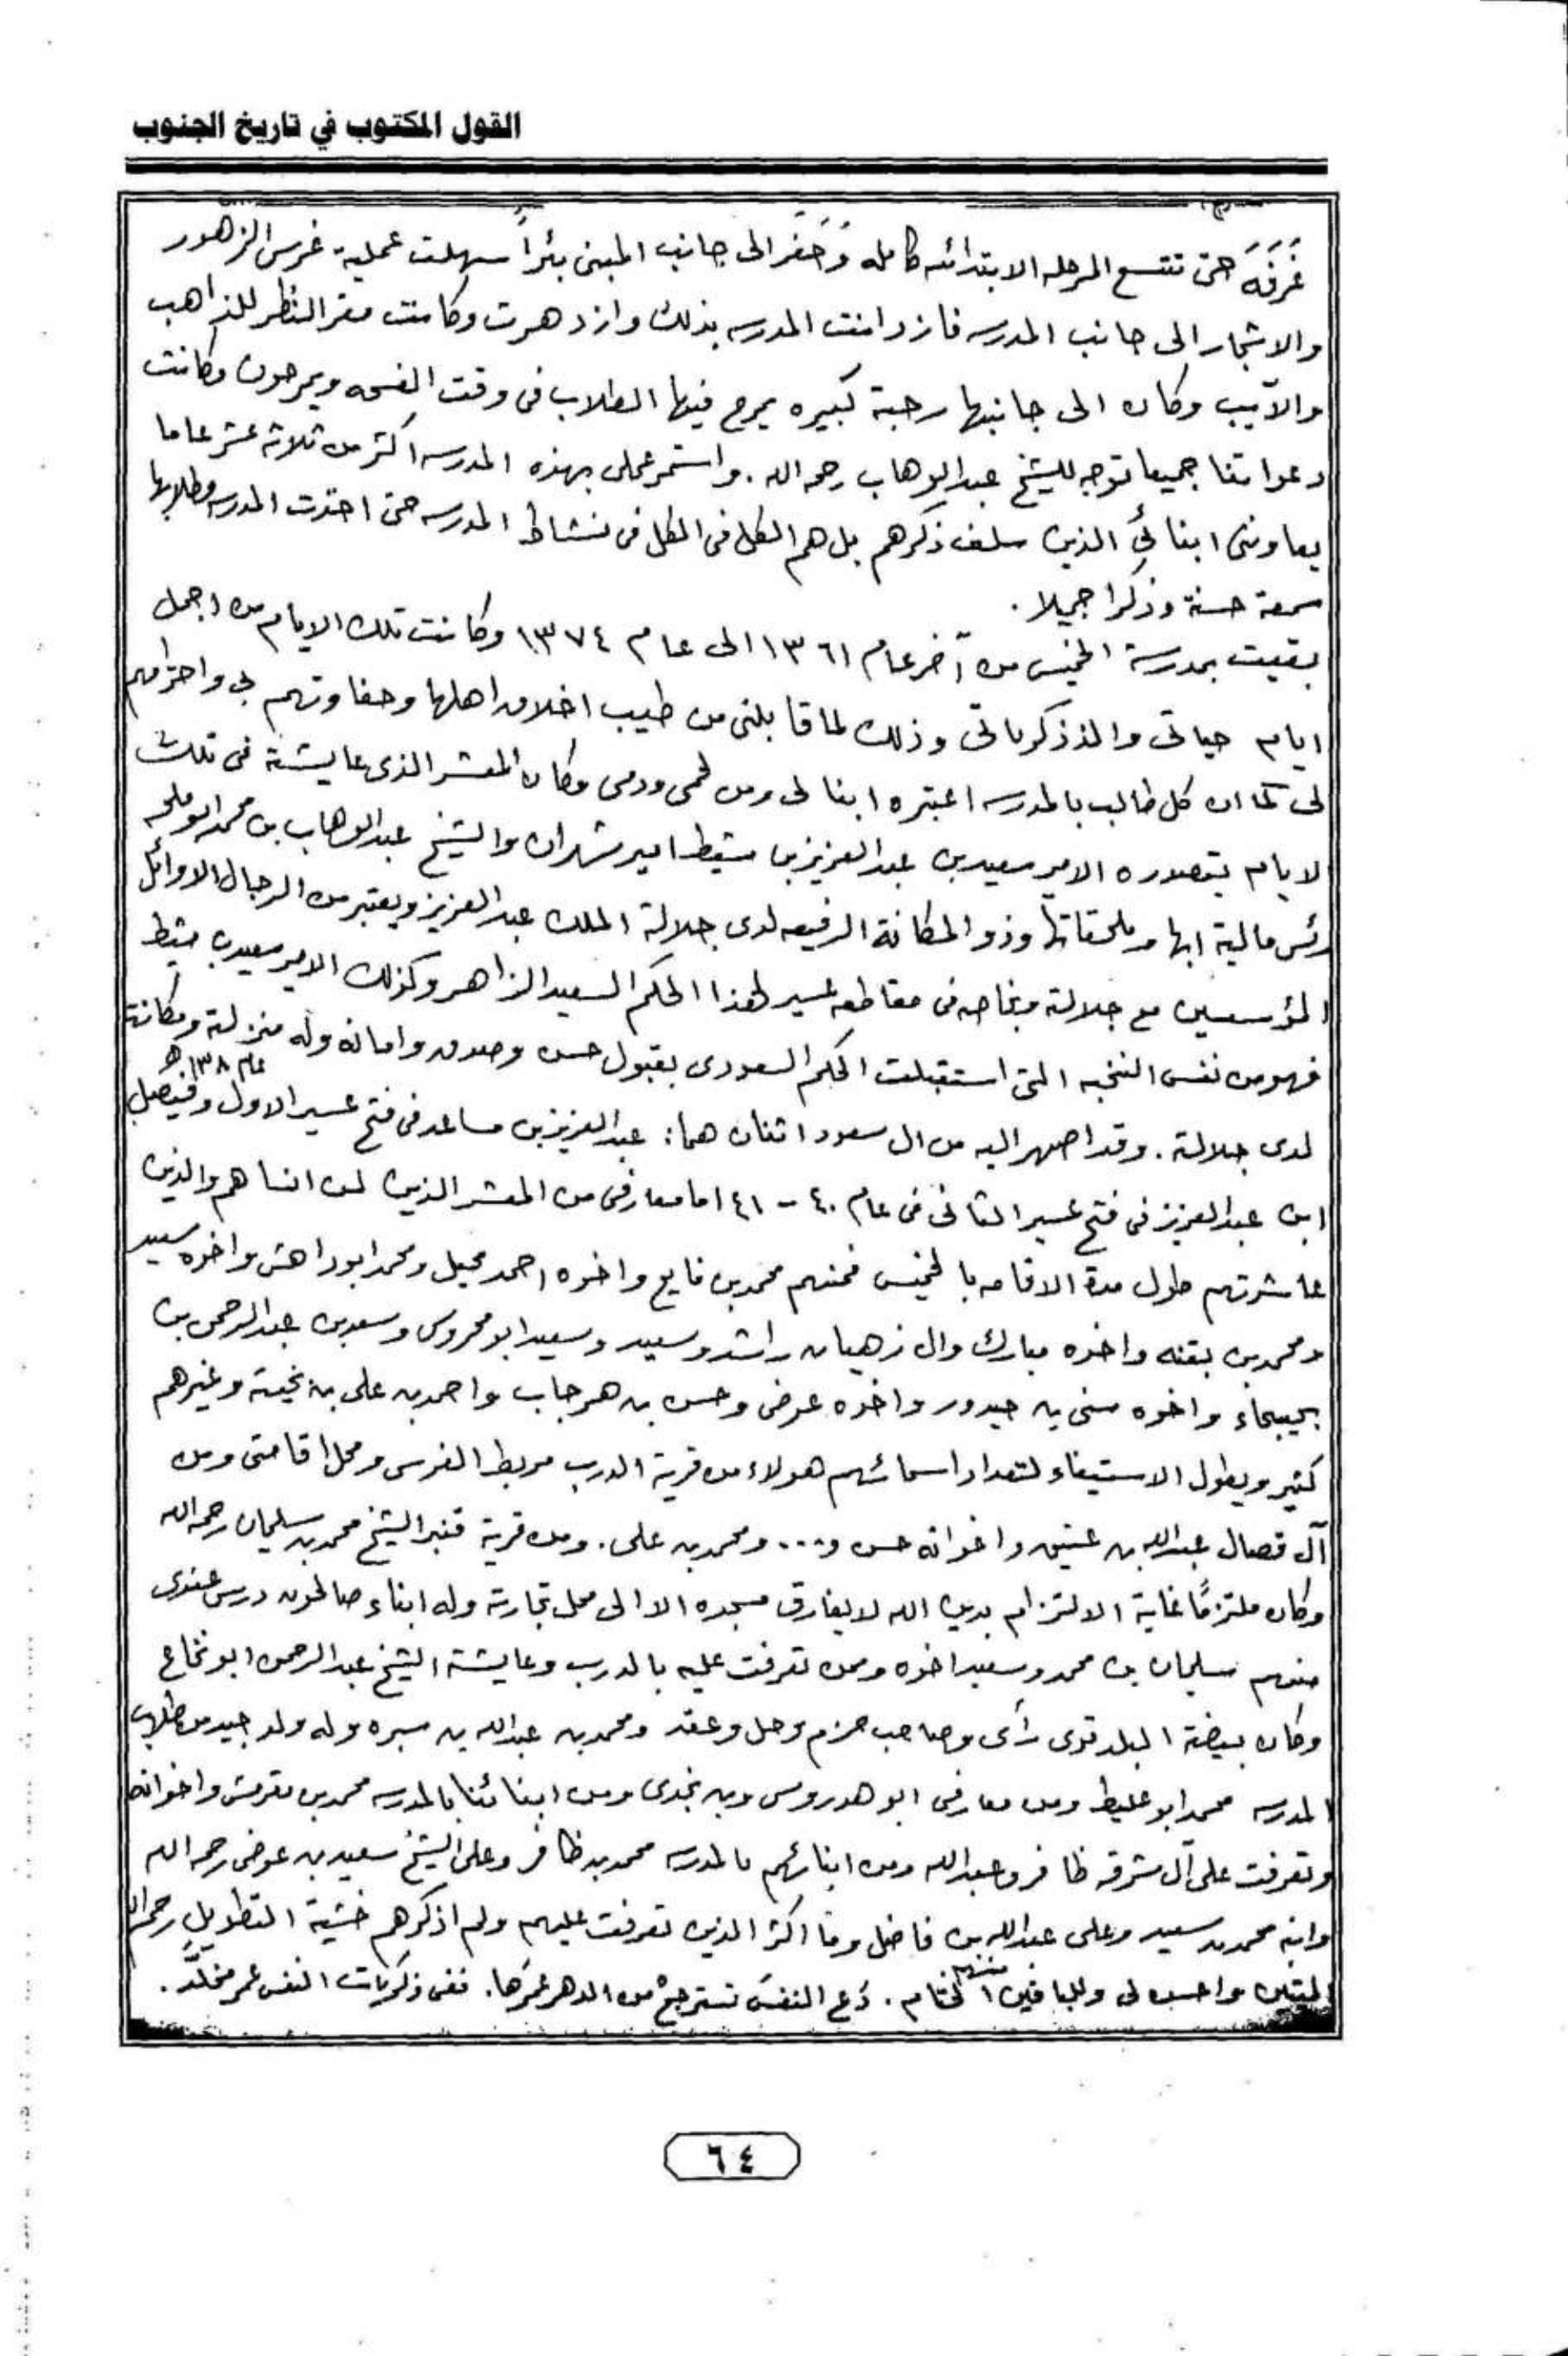 القول المكتوب في تاريخ الجنوب
غُرَفَهَ حتى تتسع المرحله الابتدائه كامله وَحَفر الى جانب المبنى بئراً سهلت عملية غرس الزهور
والاشجار الى جانب المدرسه فازدانت المدرسه بذلك وازدهرت وكانت مقر النظر للذاهب
والآيب وكان الى جانبها رحبة كبيره يمرح فيها الطلاب فى وقت الفسحه ويمرحون وكانت
دعواتنا جميعا توجه للشيخ عبدالوهاب رحمه الله . واستمر عملى بهذه المدرسه اكثر من ثلاثة عشر عاما
يعاوننى ابنائي الذين سلف ذكرهم بل هم الكل فى الكل فى نشاط المدرسه حتى اخذت المدرسه وطلابها
سمعة حسنة وذكرا جميلا .
بقيت بمدرسة الخميس من آخر عام ١٣٦١ الى عام ١٣٧٤ وكانت تلك الايام من اجمل
ايام حياتى والذ ذكرياتى وذلك لما قابلنى من طيب اخلاق اهلها وحفاوتهم بى واحترامهم
لى كما ان كل طالب بالمدرسه اعتبره ابنا لى ومن لحمى ودمى وكان المعشر الذى عايشته فى تلك
الايام يتصدره الامير سعيد بن عبدالعزيز بن مشيط امير شهران والشيخ عبدالوهاب بن محمد ابو ملحه
رئس مالية ابها وملحقاتها وذو المكانة الرفيعه لدى جلالة الملك عبدالعزيز ويعتبر من الرجال الاوائل
المؤسسين مع جلالته وبخاصه فى مقاطعه عسير لهذا الحكم السعيد الزاهر وكذلك الامير سعيد بن مشيط
فهو من نفس النخبه التى استقبلت الحكم السعودى بقبول حسن وصدق وامانه وله منزلته ومكانته
لدى جلالته . وقد اصهر اليه من ال سعود اثنان هما : عبدالعزيز بن مساعد فى فتح عسير الاول عام ١٣٣٨هـ وفيصل
ابن عبدالعزيز فى فتح عسير الثانى فى عام ٤٠ - ٤١ اما معارفى من المعشر الذين لن انساهم والذين
عاشرتهم طول مدة الاقامه بالخميس فمنهم محمد بن فايع واخوه احمد محيل ومحمد ابوداهش واخوه سعيد
ومحمد بن بقنه واخوه مبارك وال زهيان راشد وسعيد وسعيد ابو محروس وسعد بن عبدالرحمن بن
واخوه مسنى بن حيدور واخوه عوض وحسن بن هرجاب واحمد بن على بن نخيته وغيرهم
كثير ويطول الاستيفاء لتعداد اسمائهم هولاء من قرية الدرب مربط الفرس ومحل اقامتى ومن
آل قصال عبدالله بن عتيق واخوانه حسن و... ومحمد بن على . ومن قرية قنبر الشيخ محمد بن سليمان رحمه الله
وكان ملتزمًا غاية الالتزام بدين الله لا يفارق مسجده الا الى محل تجارته وله ابناء صالحون درس عندى
منهم سليمان بن محمد وسعيد اخوه وممن تعرفت عليه بالدرب وعايشته الشيخ عبدالرحمن ابو نخاع
وكان بيضة البلد قوى رأى وصاحب حزم وحل وعقد ومحمد بن عبدالله بن سبره وله ولد جيد من طلاب
المدرسه محمد ابو غليط ومن معارفى ابو هدروس وبن نجدى ومن ابنائنا بالمدرسه محمد بن مقرمش واخوانه
وتعرفت على آل مشرقه ظافر وعبدالله ومن ابنائهم بالمدرسه محمد بن ظافر وعلى الشيخ سعيد بن عوض رحمه الله
وابنه محمد بن سعيد وعلى عبدالله بن فاضل وما اكثر الذين تعرفت عليهم ولم اذكرهم خشية التطويل رحم الله
الميتين واحسن لى وللباقين منهم الختام . دَع النفسَ تسترجعْ من الدهر عُمرَها . ففى ذكريات النفس عمر مخلَّد .
٦٤